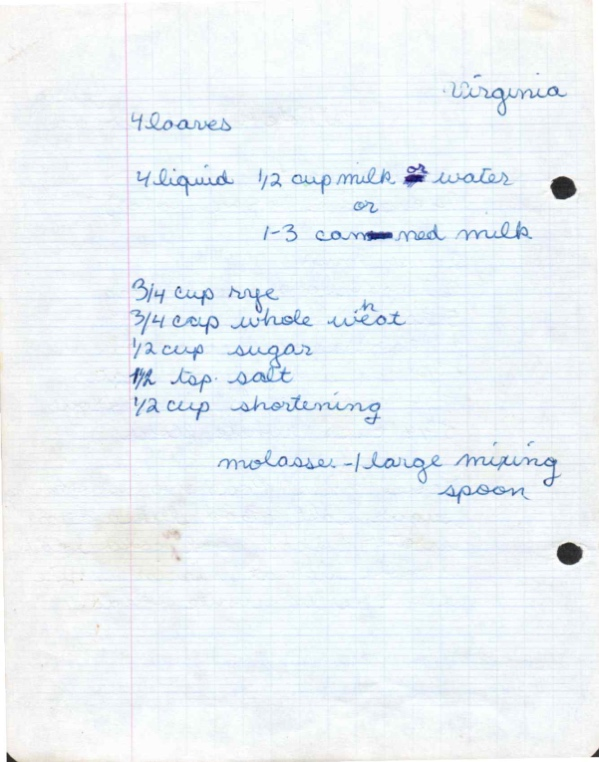 Virginia
4 loaves
4 liquid 1/2 cup milk or water
or
1-3 canned milk
3/4 cup rye
3/4 cup whole wheat
1/2 cup sugar
1 1/2 tsp. salt
1/2 cup shortening
molasses - 1 large mixing
spoon